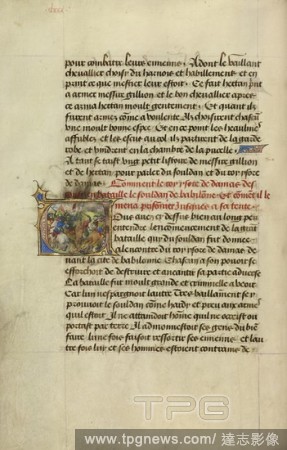 pour combatre leurs ennemis Adont le vaillant
chevallier choisi du harnois et habillement et en
arma hectan moult gentement Et quant ilz
furent armez comme a voulente Ilz choisirent chascun
une moult bonne espee Et en ce point les heaulmes
affublez et les escus au col ilz partirent de la garde
robe et vindrent en la chambre de la pucelle
A tant se taist ung petit listoire de messire gillion
et de hectan pour parler du souldan et du roy
de damas Comment le roy de damas des
bataille le souldan de babilone Et comment il le
mena prisonnier Jusques a sa tente
avez cy dessus bien au long peu
entendre le commencement de la
bataille que du souldan fut donnee
alencontre du roy de damas de
nant la cite de babilonne Chascun a son povoir se
efforchoit de destruire et aneantir sa partie adverse
La bataille fut moult grande et criminelle a veoir
Car lun nespargnoit lautre Tres vaillanment se y
prouvoit le souldan comme hardy et preu aux armes
quil estoit Il nattaindoit homme quil ne occeist ou
portast par terre Il admonnestoit ses gens du bien
faire Lune fois faisoit ressortir ses ennemis et lau
tre fois luy et ses hommes estoient contrains de
TPG
www.tpgnews.com / 達志影像